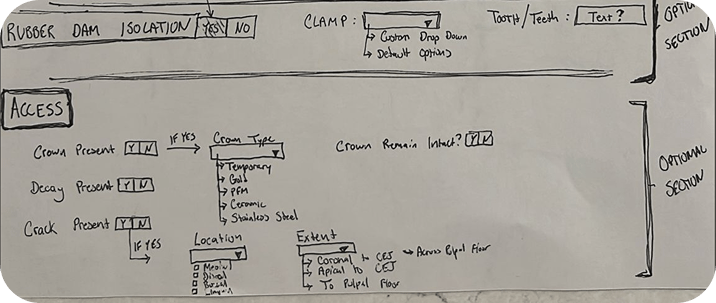 RUBBER DAM ISOLATION YES NO
CLAMP :
Custom Drop Down
Default Options
Tooth/Teeth : Text ?
OPTIONAL
SECTION
ACCESS
Crown Present Y N
IF YES
Crown Type
Temporary
Gold
PFM
Ceramic
Stainless Steel
Crown Remain Intact? Y N
Decay Present Y N
Crack Present Y N
IF YES
Location
Mesial
Distal
Buccal
Lingual
Extent
Coronal to CEJ
Apical to CEJ
To Pulpal Floor
Across Pulpal Floor
OPTIONAL
SECTION